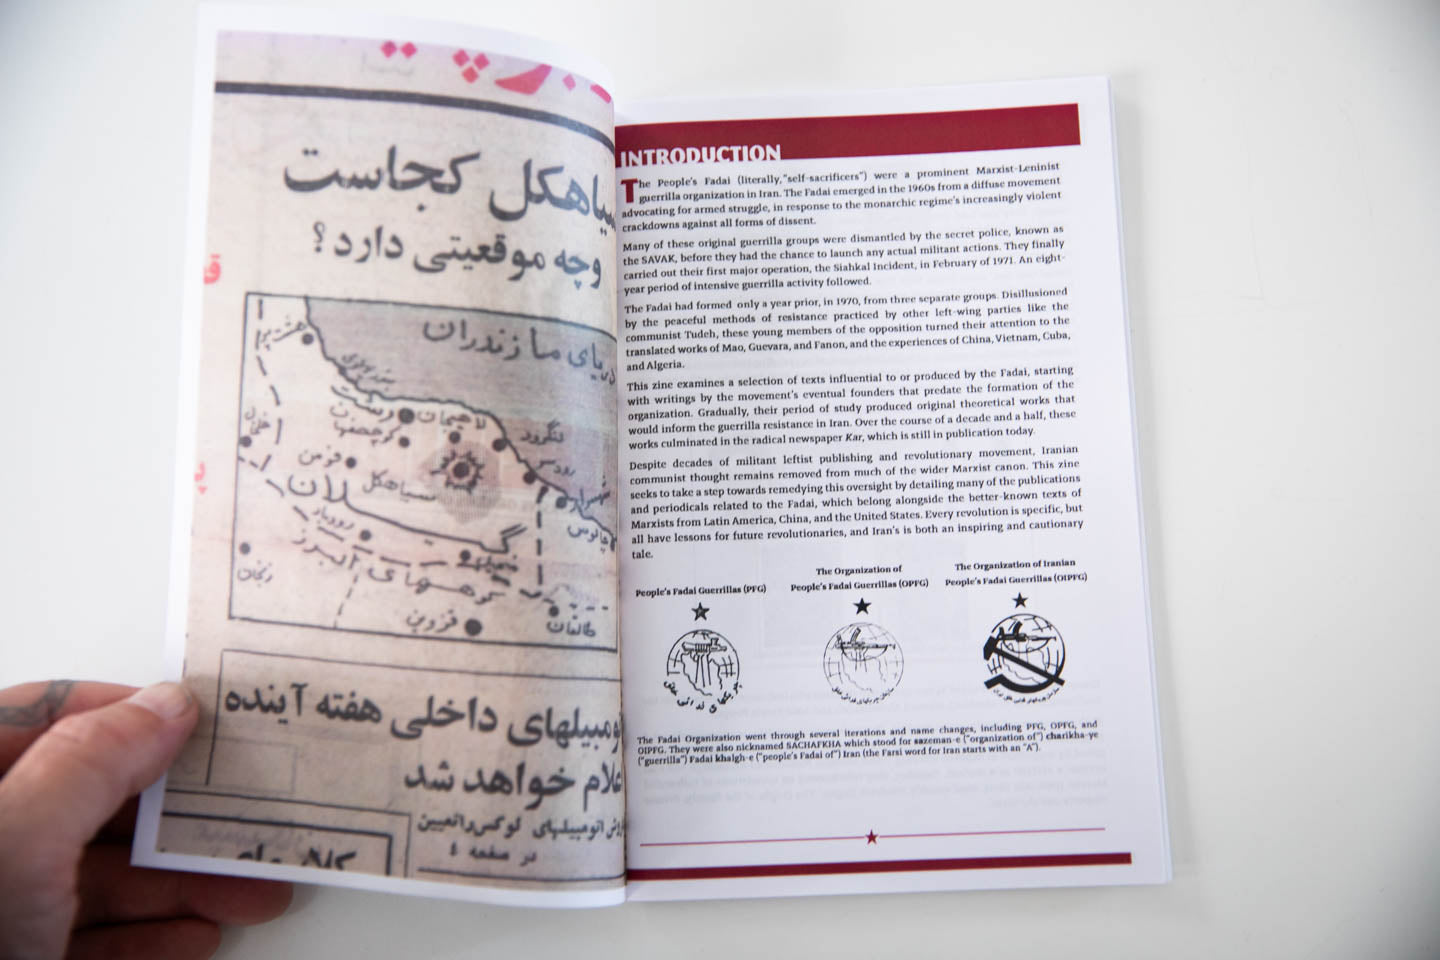 سیاهکل کجاست
وچه موقعیتی دارد؟
دریای مازندران
هشتپر
رشت
لاهیجان
لنگرود
کوچصفهان
خلخال
فومن
سیاهکل
رودسر
شهسوار
گیلان
رودبار
چالوس
کوههای البرز
زنجان
قزوین
طالقان
اتومبیلهای داخلی هفته آینده
اعلام خواهد شد
فروش اتومبیلهای لوکس راتعیین
در صفحه ٤
INTRODUCTION
The People's Fadai (literally, "self-sacrificers") were a prominent Marxist-Leninist
guerrilla organization in Iran. The Fadai emerged in the 1960s from a diffuse movement
advocating for armed struggle, in response to the monarchic regime's increasingly violent
crackdowns against all forms of dissent.
Many of these original guerrilla groups were dismantled by the secret police, known as
the SAVAK, before they had the chance to launch any actual militant actions. They finally
carried out their first major operation, the Siahkal Incident, in February of 1971. An eight-
year period of intensive guerrilla activity followed.
The Fadai had formed only a year prior, in 1970, from three separate groups. Disillusioned
by the peaceful methods of resistance practiced by other left-wing parties like the
communist Tudeh, these young members of the opposition turned their attention to the
translated works of Mao, Guevara, and Fanon, and the experiences of China, Vietnam, Cuba,
and Algeria.
This zine examines a selection of texts influential to or produced by the Fadai, starting
with writings by the movement's eventual founders that predate the formation of the
organization. Gradually, their period of study produced original theoretical works that
would inform the guerrilla resistance in Iran. Over the course of a decade and a half, these
works culminated in the radical newspaper Kar, which is still in publication today.
Despite decades of militant leftist publishing and revolutionary movement, Iranian
communist thought remains removed from much of the wider Marxist canon. This zine
seeks to take a step towards remedying this oversight by detailing many of the publications
and periodicals related to the Fadai, which belong alongside the better-known texts of
Marxists from Latin America, China, and the United States. Every revolution is specific, but
all have lessons for future revolutionaries, and Iran's is both an inspiring and cautionary
tale.
People's Fadai Guerrillas (PFG)
The Organization of
People's Fadai Guerrillas (OPFG)
The Organization of Iranian
People's Fadai Guerrillas (OIPFG)
چریکهای فدائی خلق
سازمان چریکهای فدائی خلق
سازمان چریکهای فدائی خلق ایران
The Fadai Organization went through several iterations and name changes, including PFG, OPFG, and
OIPFG. They were also nicknamed SACHAFKHA which stood for sazeman-e ("organization of") charikha-ye
("guerrilla") Fadai khalgh-e ("people's Fadai of") Iran (the Farsi word for Iran starts with an "A").